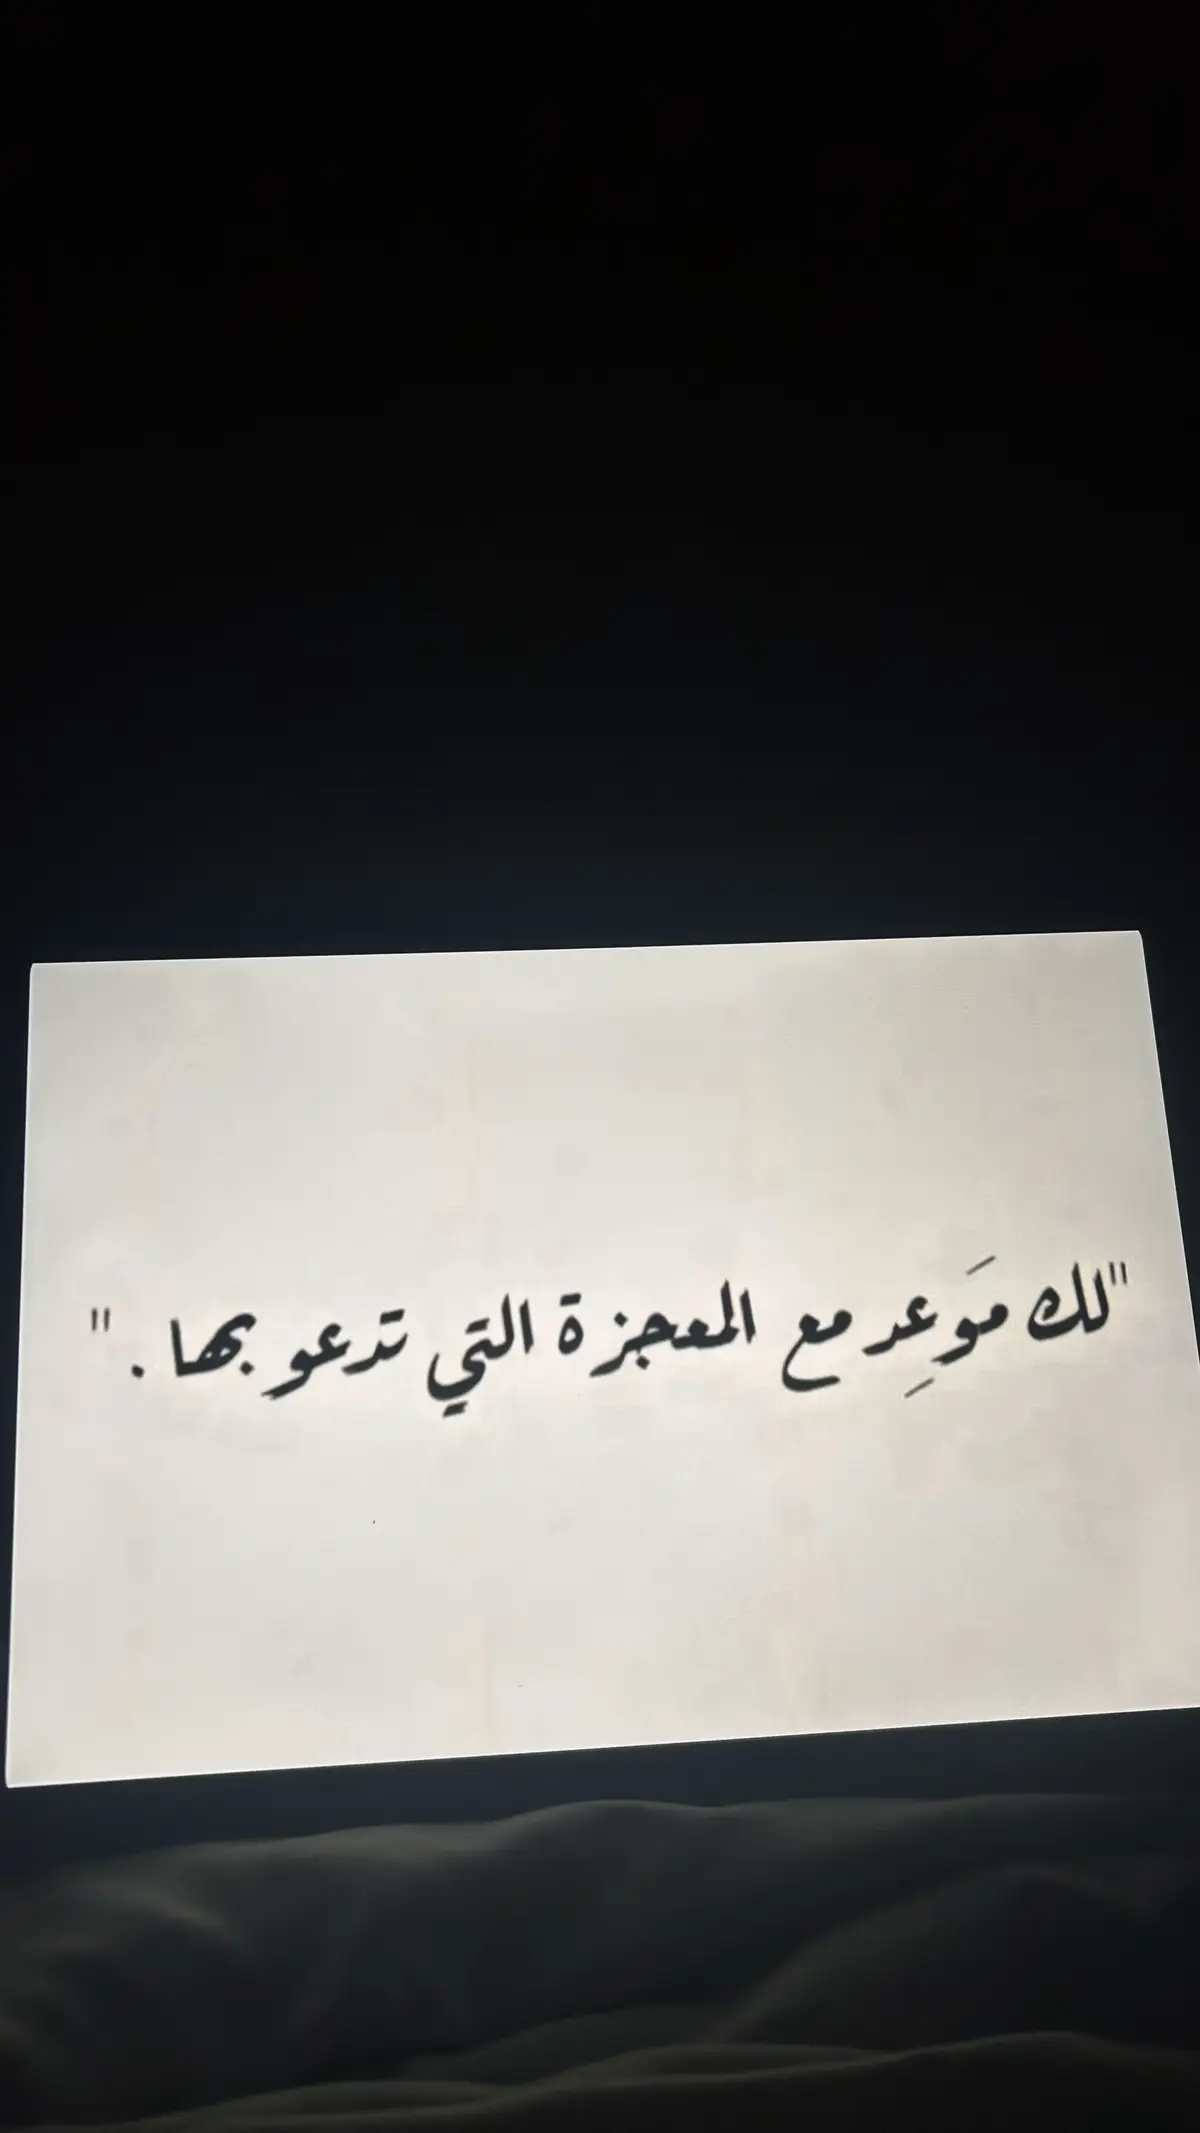 "لك مَوعِد مع المعجزة التي تدعو بها . "